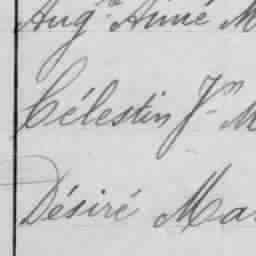 Augte Aimé M
Célestin Jn M
Désiré Ma